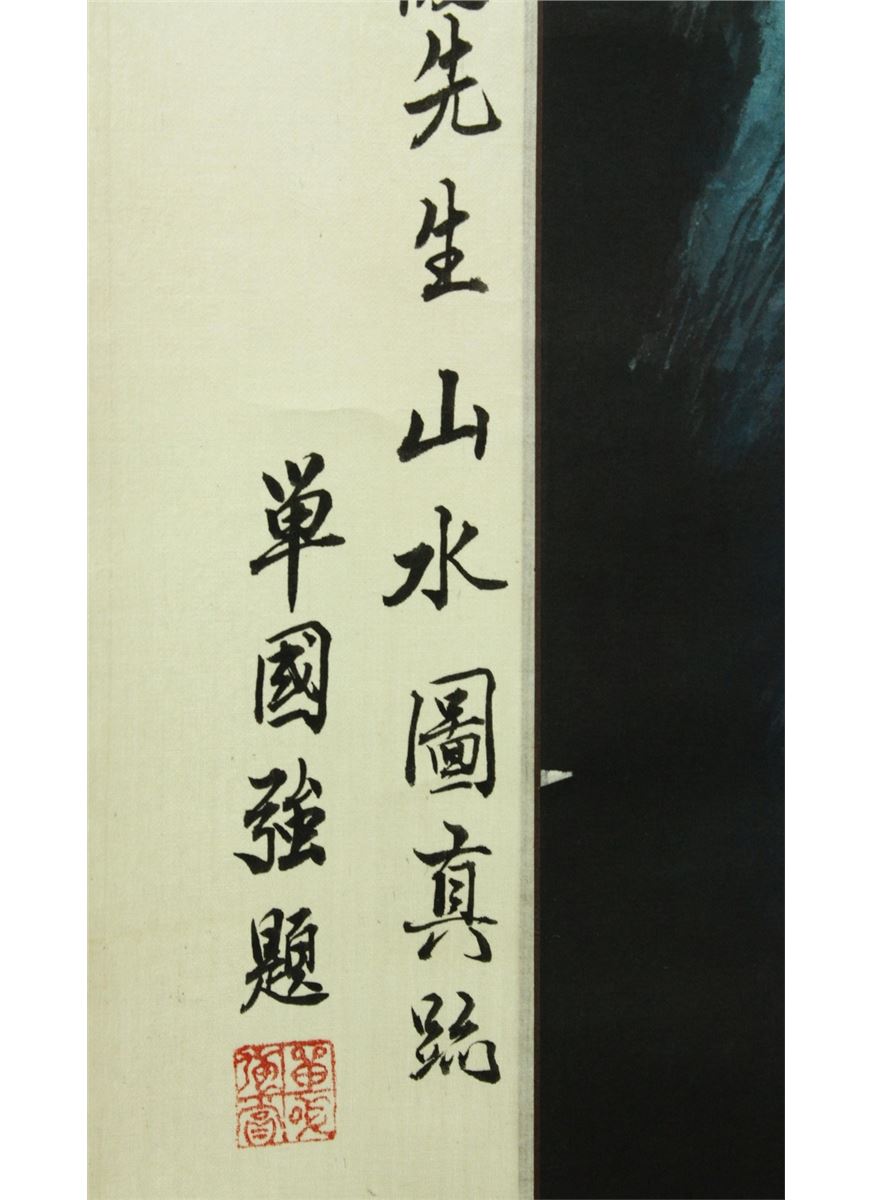 先生山水圖真跡
單國強題